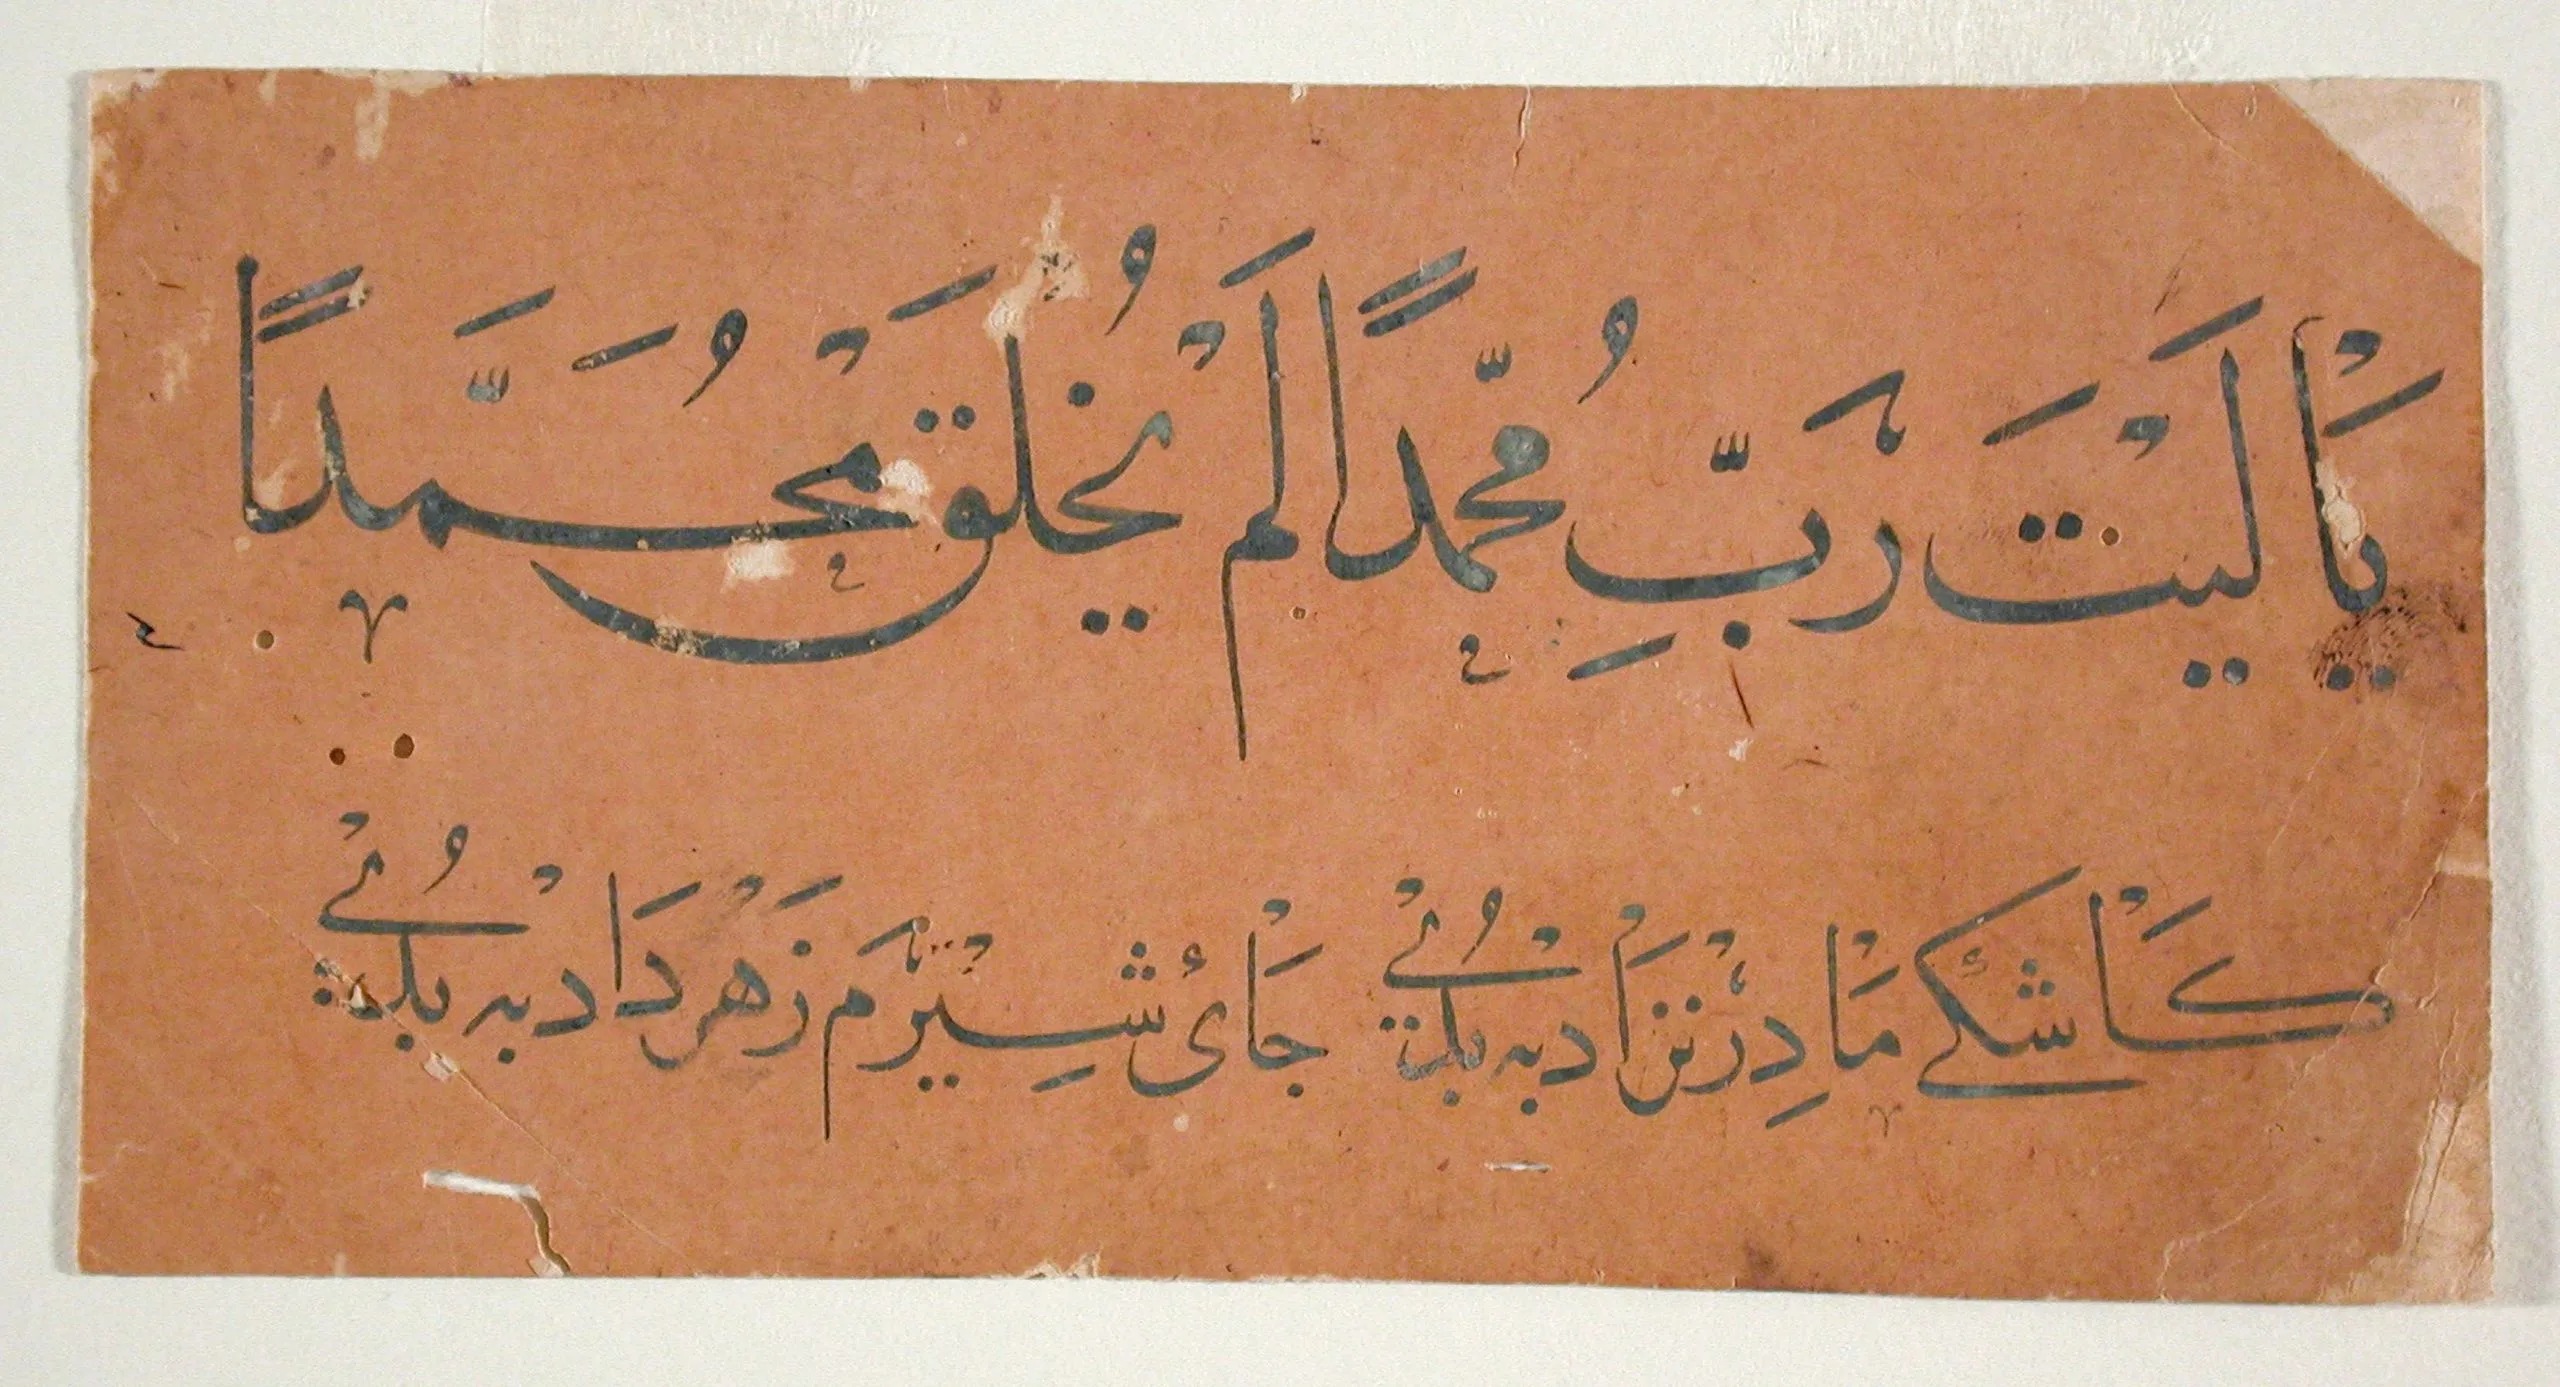 يَا لَيْتَ رَبَّ مُحَمَّدًا لَمْ يُخْلَقْ مُحَمَّدًا
كَاشْكَيْ مَادِرْ نَزَادْ بِه بُدَيْ جَائ شِيْرَم زَهْر دَادْ بِه بُدَيْ